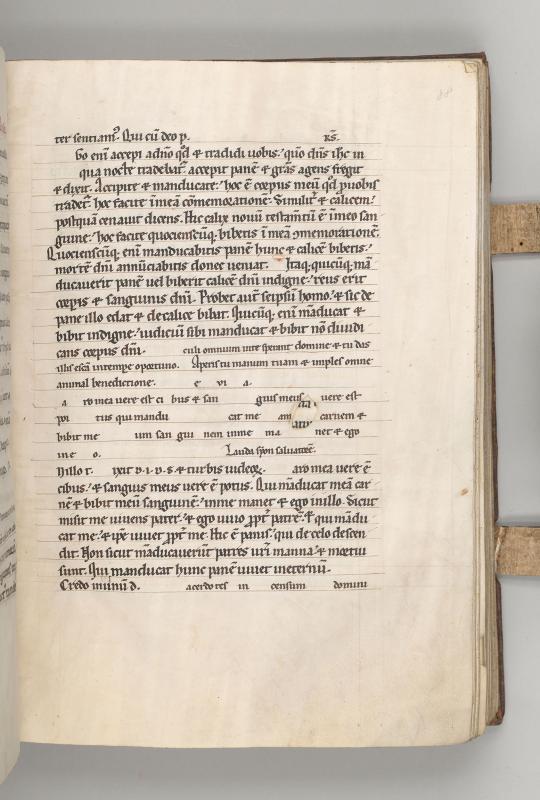 ter sentiam⁹. Qui cū deo p. KS.
Go enī accepi adño qđ & tradidi uobis. quō dñs ihc in
qua nocte tradebat̄. accepit panē & grās agens fregit
& dixit. Accipite & manducate. hoc ē corpus meū qđ ꝓ uobis
tradet̄. hoc facite ī meā cōmemorationē. Similit̄ & calicem.
postquā cenauit dicens. Hic calix nouū testam̄tū ē in meo san
guine. hoc facite quociensciūq, bibetis ī meā ꝯmemorationē.
Quociensciūq, enī manducabitis panē hunc & calicē bibetis.
mortē dñi annūciabitis donec ueniat. Itaq, quicūq, mā
ducauerit panē uel biberit calicē dñi indigne. reus erit
corpis & sanguinis dñi. Probet aut̄ seipsū homo. & sic de
pane illo edat & de calice bibat. Quicūq, enī māducat &
bibit indigne. iudiciū sibi manducat & bibit nō diiudi
cans corpus dñi. culi omnium in te sperant domine & tu das
illis escā in tempore oportuno. Aperis tu manum tuam & imples omne
animal benedictione. e vi a.
a ro mea uere est ci bus & san guis meus uere est
po tus qui mandu cat me am carnem &
bibit me um san gui nem in me ma net & ego
in e o. Lauda syon saluatorē.
N illo t. ixit D.I.D.S. & turbis iudeoꝝ. aro mea uere ē
cibus. & sanguis meus uere ē potus. Qui māducat meā car
nē & bibit meū sanguinē. in me manet & ego in illo. Sicut
misit me uiuens pater. & ego uiuo ꝓpt̄ patrē. & qui mādu
cat me. & ipē uiuet ꝓpt̄ me. Hic ē panis. qui de celo descen
dit. Non sicut māducauerūt patres urī manna. & mortui
sunt. Qui manducat hunc panē uiuet in eternū.
Credo in unū d. acerdotes in censum domini